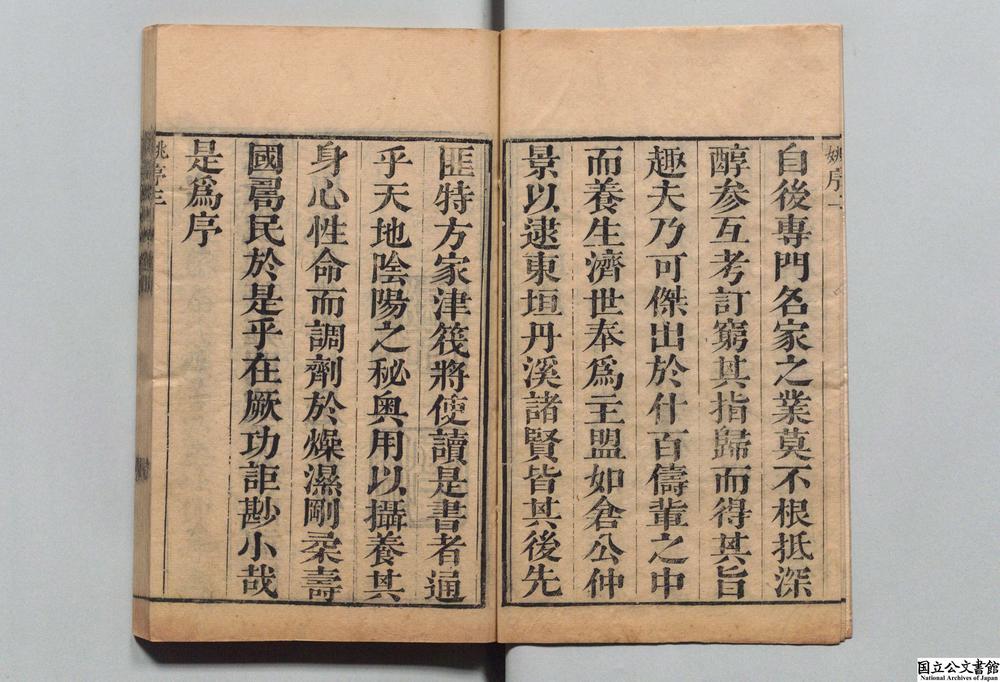 自後專門名家之業莫不根抵深
醇参互考訂窮其指歸而得其旨
趣夫乃可傑出於什百儔軰之中
而養生濟世奉爲主盟如倉公仲
景以逮東垣丹溪諸賢皆其後先
匪特方家津筏將使讀是書者通
乎天地陰陽之秘奥用以攝養其
身心性命而調劑於燥濕剛柔壽
國壽民於是乎在厥功詎尠小哉
是爲序
姚序三
国立公文書館
National Archives of Japan